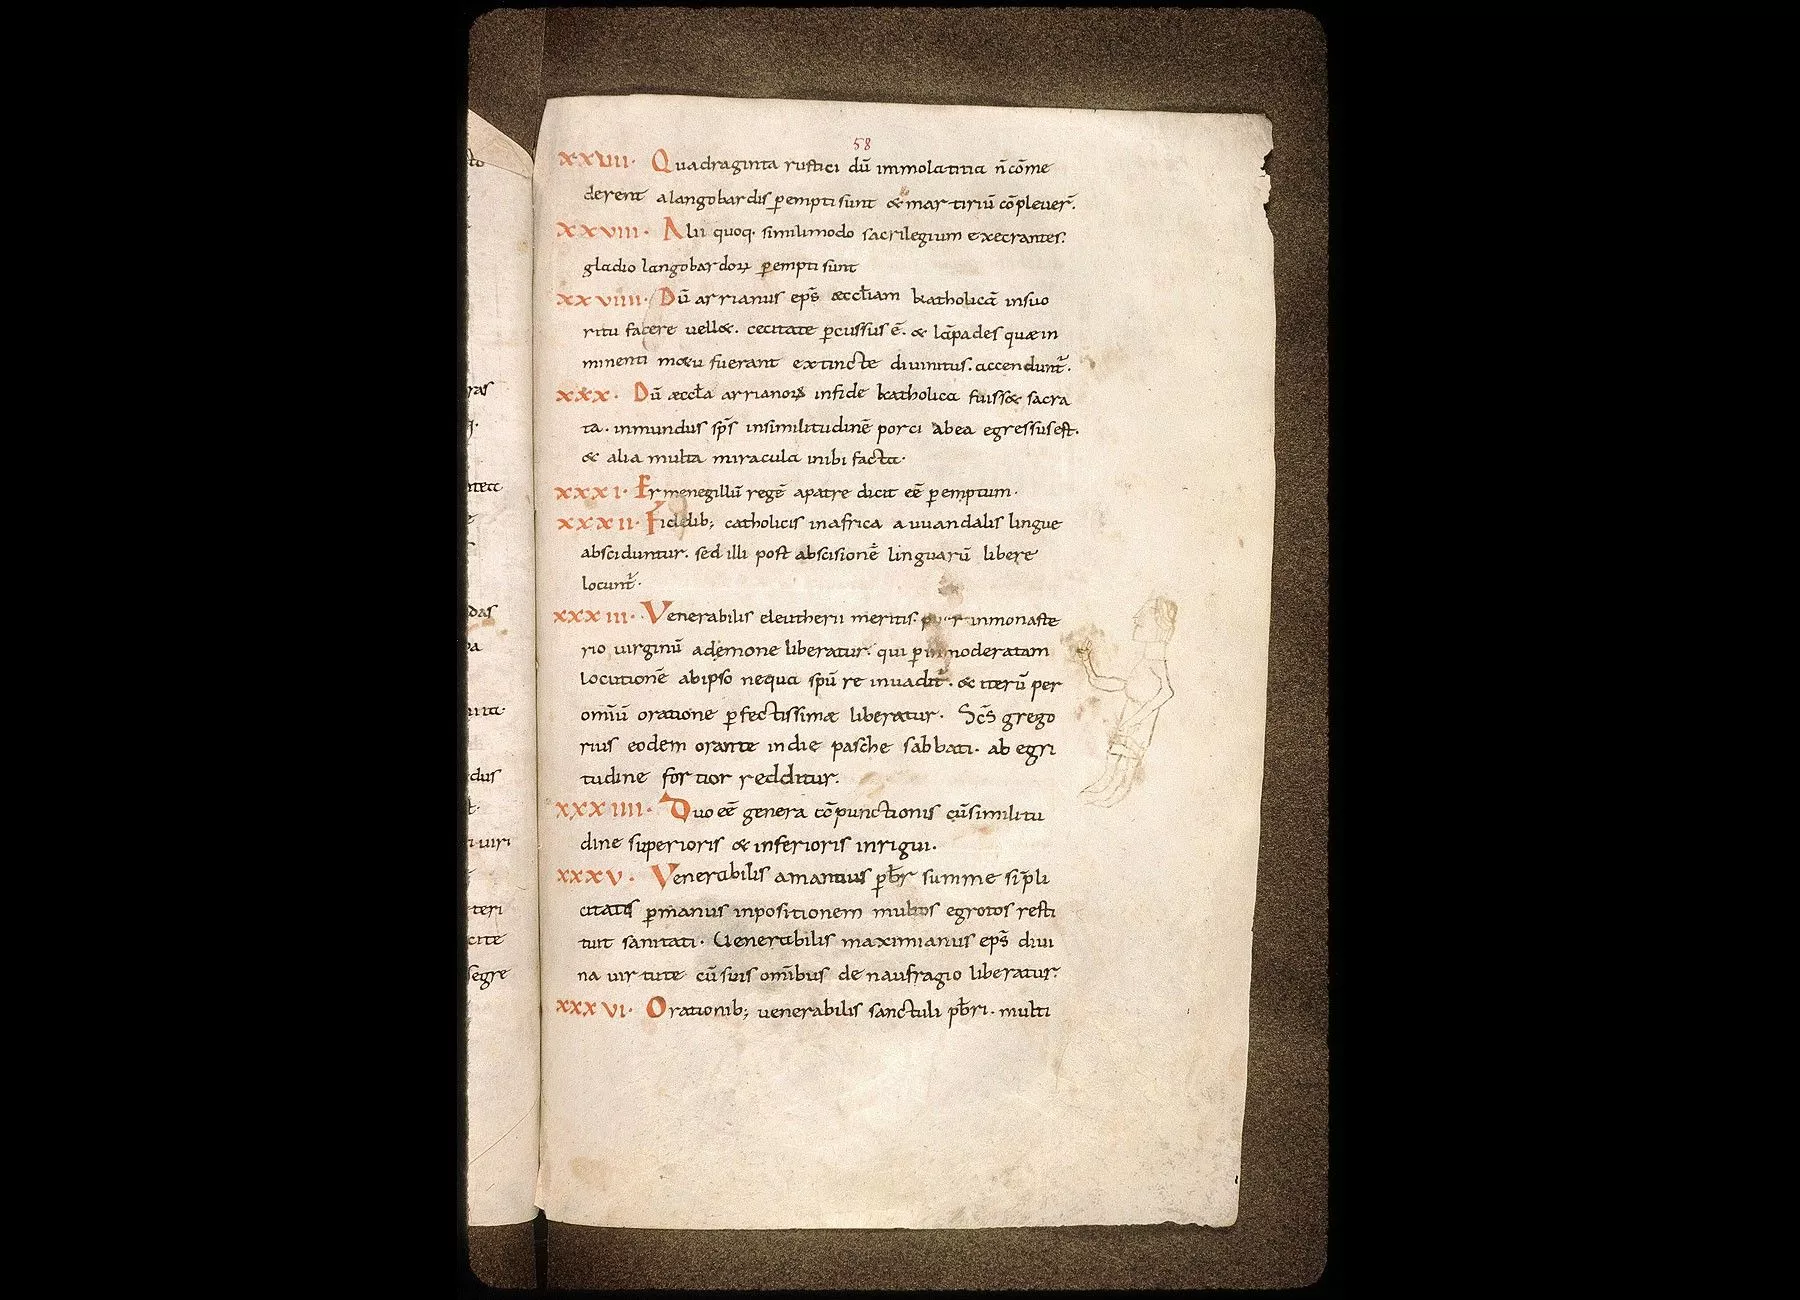 to
ras
q·
tecc
e
das
ba
dus
t·
uiri
teri
cite
segre
58
XXVII· Quadraginta rustici dū immolaticia n̄ cōme
derent alangobardis p̄empti sunt & martiriū cōpleuer̄.
XXVIII· Alii quoq· similimodo sacrilegium execrantes.
gladio langobardoꝝ p̄empti sunt
XXVIIII· Dū arrianus ep̄s æccl̄iam katholicā insuo
ritu facere uell&. cecitate ꝑcussus ē. & lāpades quæ in
minenti m&u fuerant extincte diuinitus. accendunt̄.
XXX· Dū æccl̄a arrianoꝝ infide katholica fuiss& sacra
ta. inmundus sp̄s insimilitudinē porci abea egressus est.
& alia multa miracula inibi facta·
XXXI· Ermenegillū regē apatre dicit eē p̄emptum·
XXXII· Fidelib; catholicis inafrica auuandalis lingue
absciduntur. sed illi post abscisionē linguarū libere
locunt̄·
XXXIII· Venerabilis eleutherii meritis. puer inmonaste
rio uirginū ademone liberatur. qui ꝑ inmoderatam
locutionē abipso nequa sp̄u re inuadit̄. & iterū per
om̄iū oratione ꝑfectissimæ liberatur. Sc̄s grego
rius eodem orante indie pasche sabbati. ab egri
tudine fortior redditur.
XXXIIII· Duo eē genera cōpunctionis cū similitu
dine superioris & inferioris inrigui.
XXXV· Venerabilis amantius p̄br summe sīpli
citatis ꝑmanus inpositionem multos egrotos resti
tuit sanitati. Venerabilis maximianus ep̄s diui
na uirtute cū suis om̄ibus de naufragio liberatur.
XXXVI· Orationib; uenerabilis sanctuli p̄bri. multi